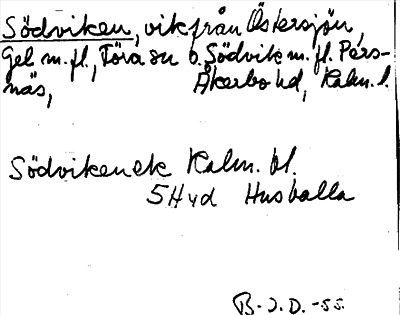 Södviken, vik från Östersjön,
Gel m. fl., Föra sn o. Södvik m. fl. Pers-
näs, Åkerbo hd, Kalm. l.
Södviken ek Kalm. bl.
5H vd Husvalla
B. J. D. -55.